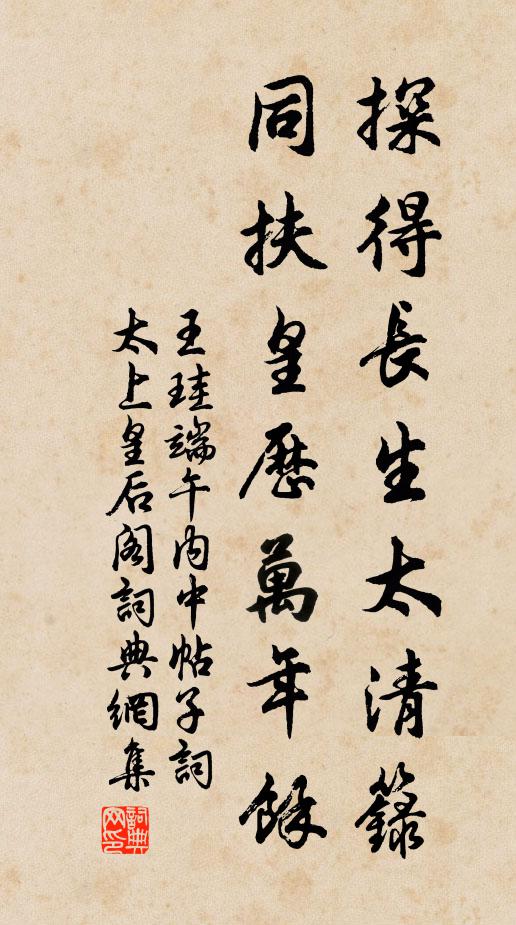 探得長生太清籙
同扶皇歷萬年餘
王珪端午內中帖子詞
太上皇后阁詞典網集
詞典网印